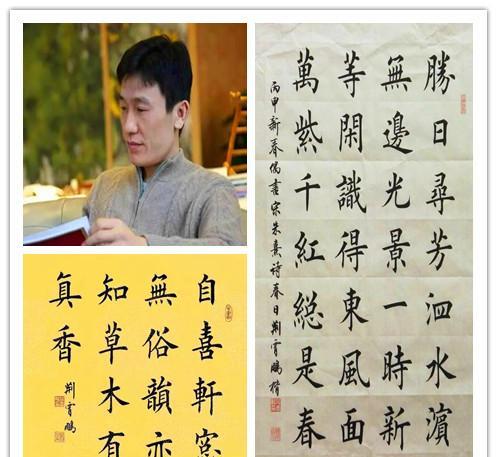 勝日尋芳泗水濱
無邊光景一時新
等閑識得東風面
萬紫千紅總是春
丙申新春偶書宋朱熹詩春日荊霄鵬楷
自喜軒窓
無俗韻亦
知草木有
真香
荊霄鵬